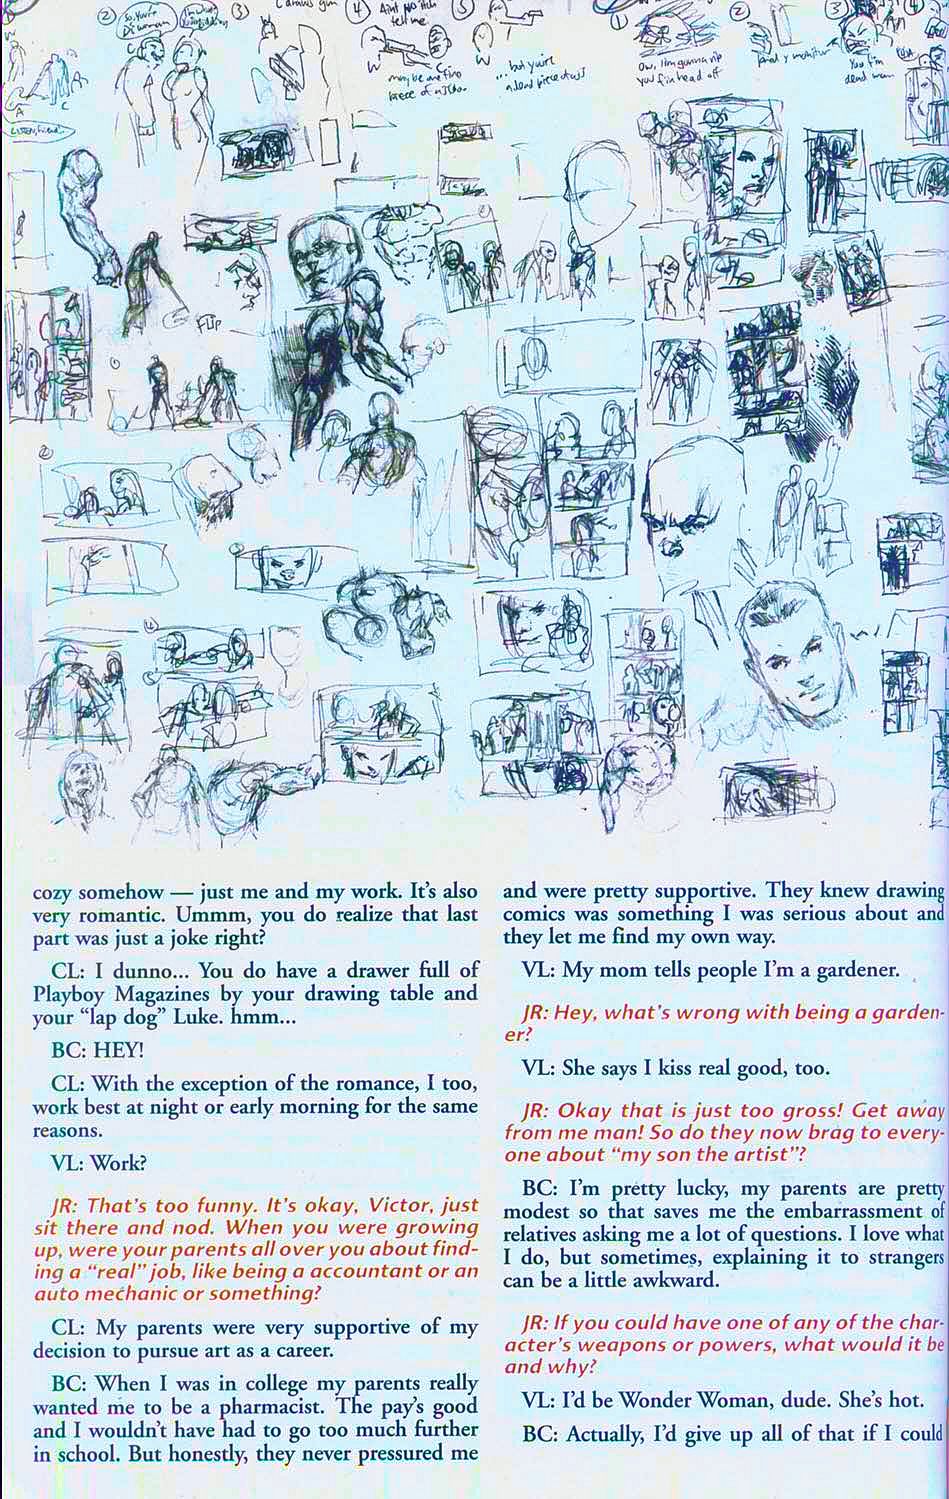 ②
So. You're
Diamond
③
④
Aint no bitch
tell me
⑤
①
②
③
④
W
W
W
C
maybe one fine
piece of
... but you're
a dead piece of ass
Ow. I'm gunna rip
you f'in head off
You f'in
dead man
A
C
Listen, friend.
FLIP
cozy somehow — just me and my work. It's also
very romantic. Ummm, you do realize that last
part was just a joke right?
CL: I dunno... You do have a drawer full of
Playboy Magazines by your drawing table and
your “lap dog” Luke. hmm...
BC: HEY!
CL: With the exception of the romance, I too,
work best at night or early morning for the same
reasons.
VL: Work?
JR: That's too funny. It's okay, Victor, just
sit there and nod. When you were growing
up, were your parents all over you about find-
ing a “real” job, like being a accountant or an
auto mechanic or something?
CL: My parents were very supportive of my
decision to pursue art as a career.
BC: When I was in college my parents really
wanted me to be a pharmacist. The pay's good
and I wouldn't have had to go too much further
in school. But honestly, they never pressured me
and were pretty supportive. They knew drawing
comics was something I was serious about and
they let me find my own way.
VL: My mom tells people I'm a gardener.
JR: Hey, what's wrong with being a garden-
er?
VL: She says I kiss real good, too.
JR: Okay that is just too gross! Get away
from me man! So do they now brag to every-
one about “my son the artist”?
BC: I'm pretty lucky, my parents are pretty
modest so that saves me the embarrassment of
relatives asking me a lot of questions. I love what
I do, but sometimes, explaining it to strangers
can be a little awkward.
JR: If you could have one of any of the char-
acter's weapons or powers, what would it be
and why?
VL: I'd be Wonder Woman, dude. She's hot.
BC: Actually, I'd give up all of that if I could